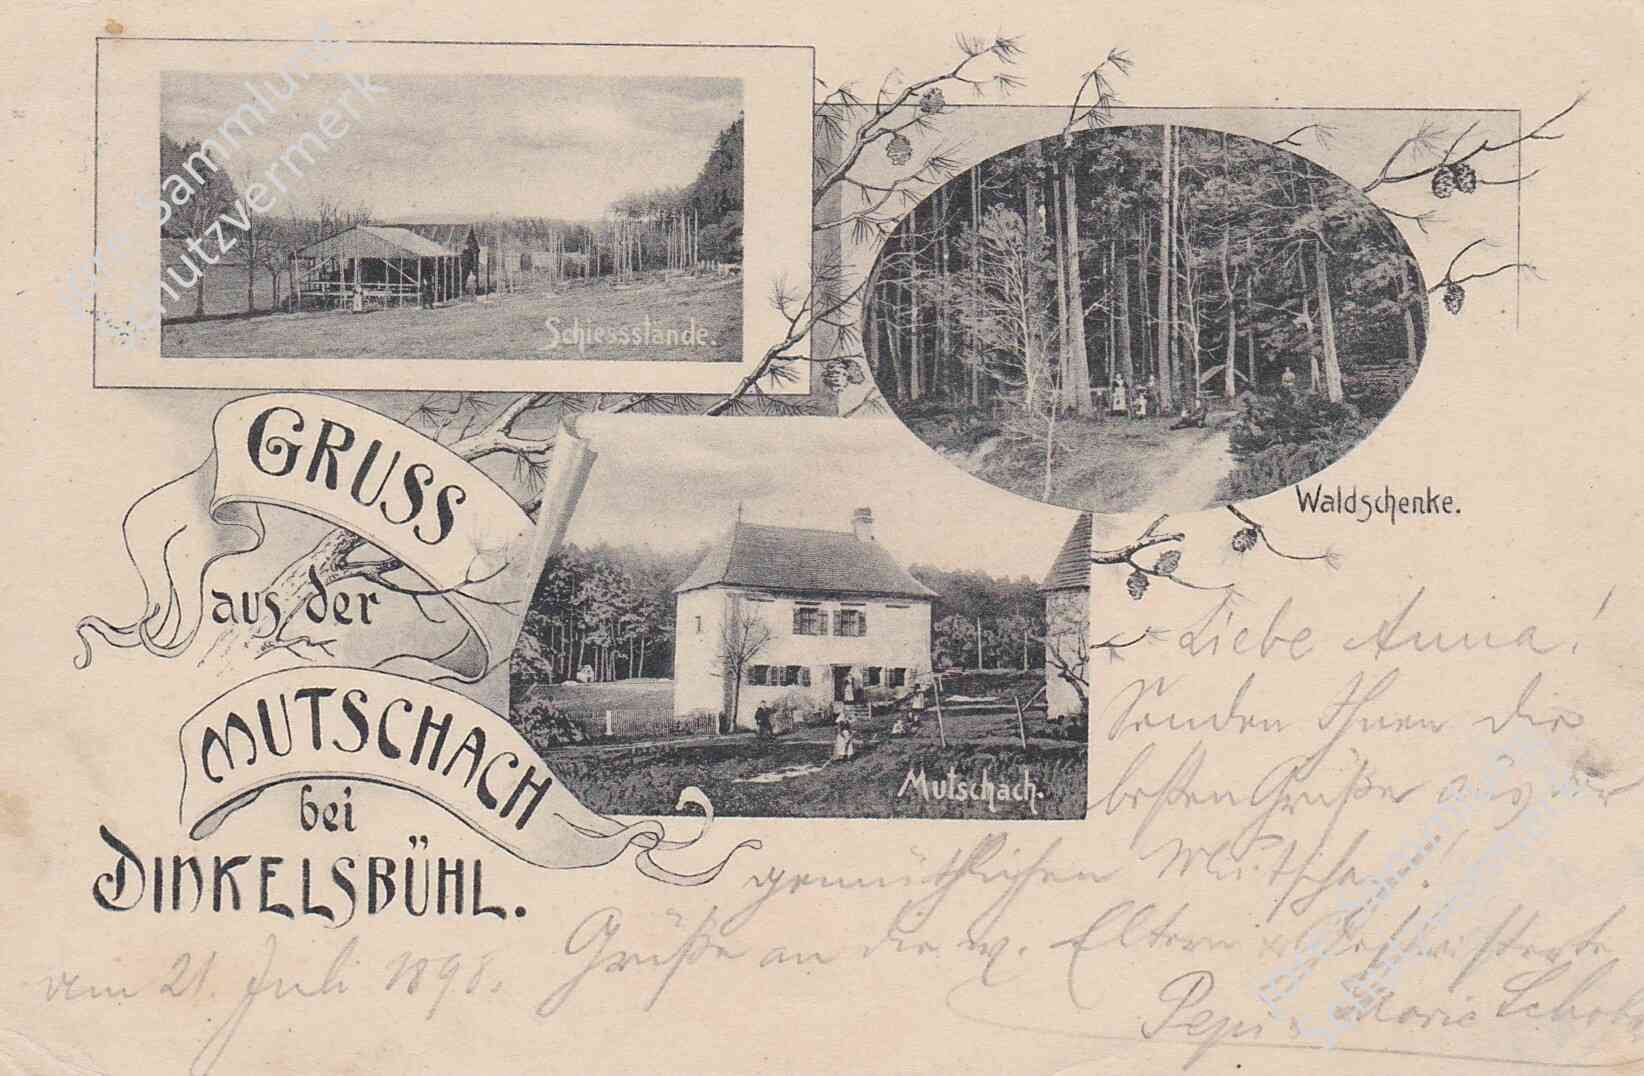 Schiessstände.
Waldschenke.
GRUSS
aus der
MUTSCHACH
bei
DINKELSBÜHL.
Mutschach.
Liebe Anna!
Senden Ihnen die
besten Grüße aus der
gemüthlichen Mutschach!
Grüße an die w. Eltern u. Geschwister
Pepi u. Marie
am 21. Juli 1898.
Sammlung
Schutzvermerk